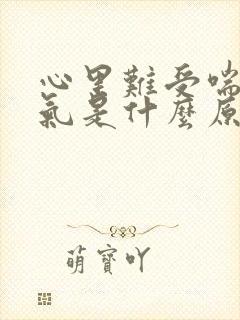 心里難受喘
氣是什麼原
萌寶吖